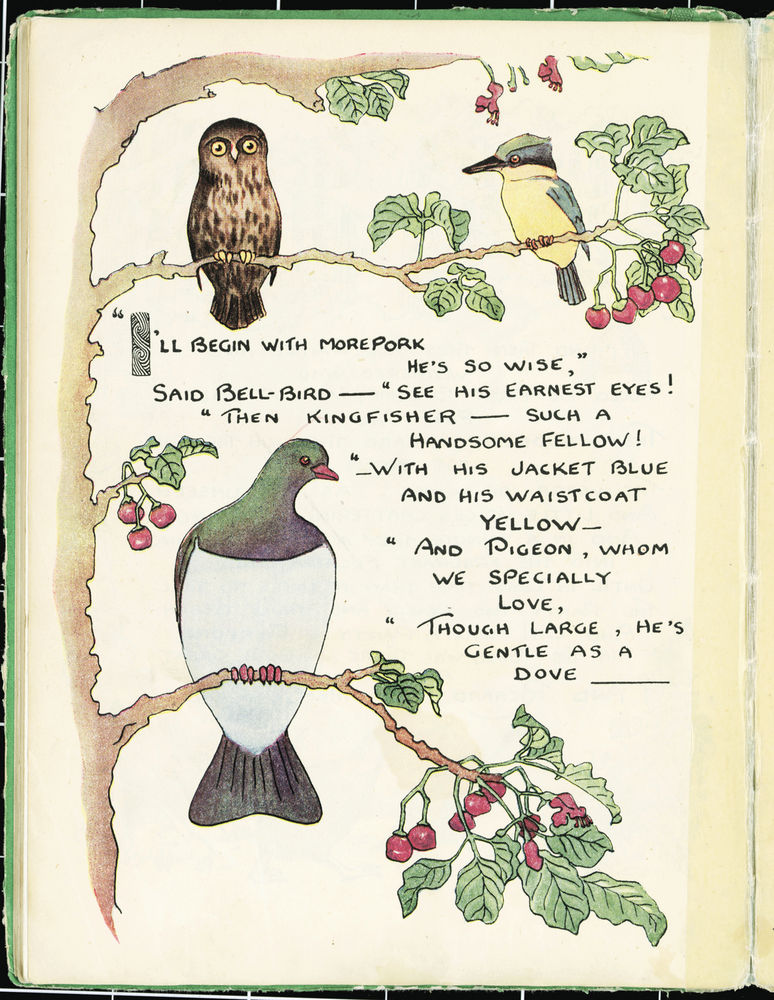 "I'LL BEGIN WITH MOREPORK
HE'S SO WISE,"
SAID BELL-BIRD — "SEE HIS EARNEST EYES!
"THEN KINGFISHER — SUCH A
HANDSOME FELLOW!
"—WITH HIS JACKET BLUE
AND HIS WAISTCOAT
YELLOW—
"AND PIGEON, WHOM
WE SPECIALLY
LOVE,
"THOUGH LARGE, HE'S
GENTLE AS A
DOVE ———